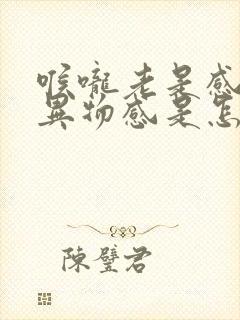 喉嚨老是感
異物感是怎
陳璧君